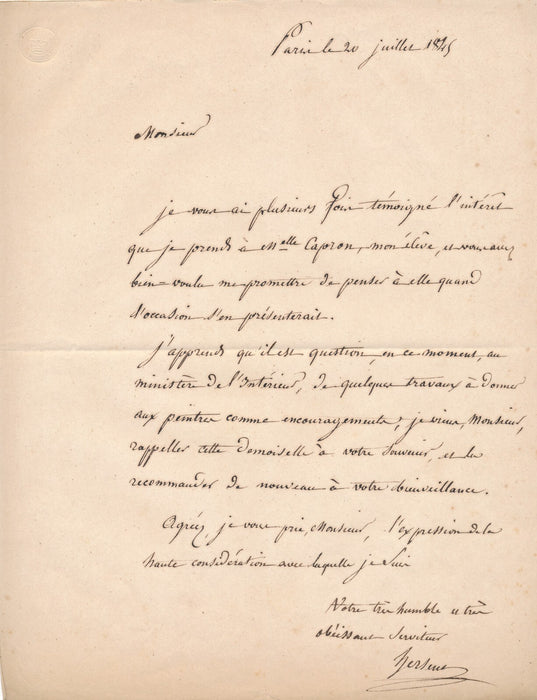 Paris le 20 juillet 1845
Monsieur
je vous ai plusieurs fois témoigné l'intérêt
que je prends à Melle Capron, mon élève, et vous avez
bien-voulu me promettre de penser à elle quand
l'occasion s'en présenterait.
j'apprends qu'il est question, en ce moment, au
ministère de l'Intérieur, de quelques travaux à donner
aux peintres comme encouragements; je viens, Monsieur,
rappeller cette demoiselle à votre souvenir, et la
recommander de nouveau à votre bienveillance.
Agréez, je vous prie, Monsieur, l'expression de la
haute considération avec laquelle je suis
Votre très humble et très
obéissant serviteur
hersent